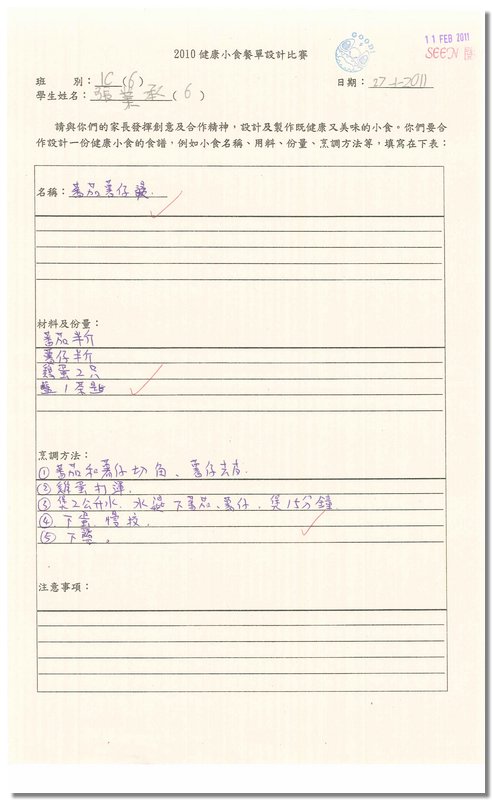 GOOD!
11 FEB 2011
SEEN
2010 健康小食餐單設計比賽
班 別：1C (6) 日期：27-1-2011
學生姓名：張葉承 (6)
請與你們的家長發揮創意及合作精神，設計及製作既健康又美味的小食。你們要合
作設計一份健康小食的食譜，例如小食名稱、用料、份量、烹調方法等，填寫在下表：
名稱：蕃茄薯仔湯.
材料及份量：
蕃茄半斤
薯仔半斤
雞蛋2只
1茶匙
烹調方法：
① 蕃茄和薯仔切角、薯仔去皮.
② 雞蛋打渾.
③ 煲2公升水. 水滾下蕃茄、薯仔. 煲15分鐘
④ 下蛋 慢校.
⑤ 下
注意事項：